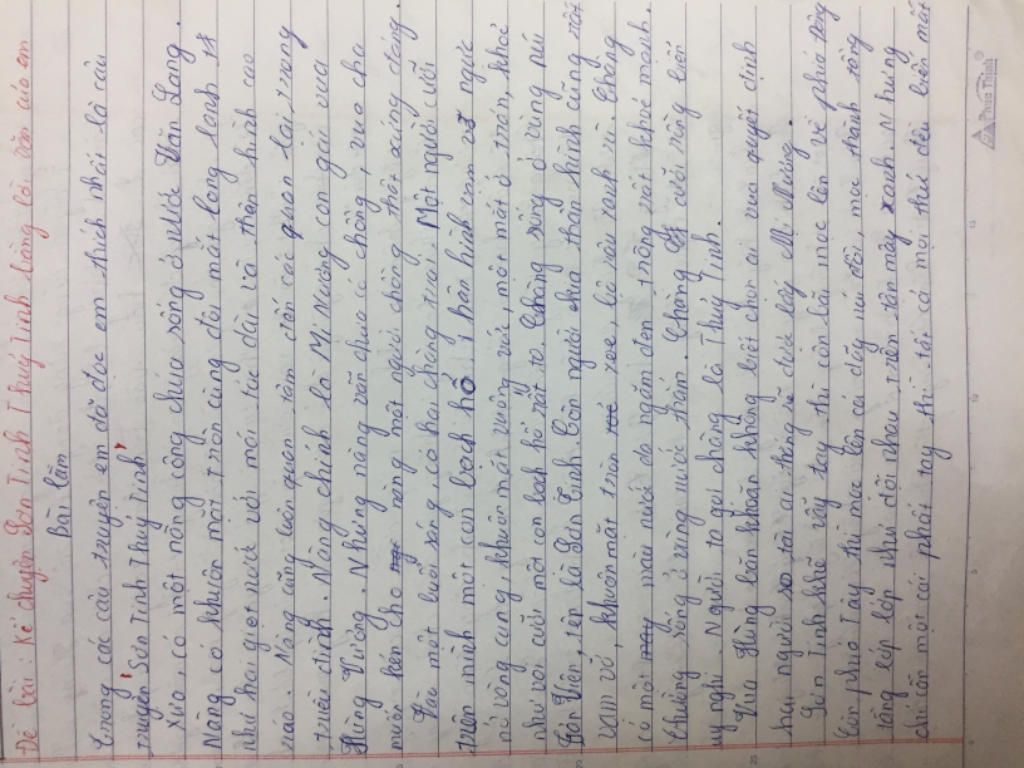 Đề bài: Kể chuyện Sơn Tinh Thuỷ Tinh bằng lời văn của em
Bài làm
Trong các câu truyện em đã đọc em thích nhất là câu
truyện "Sơn Tinh Thuỷ Tinh"
Xưa, có một nàng công chúa sống ở nước Văn Lang.
Nàng có khuôn mặt tròn cùng đôi mắt long lanh
như hai giọt nước với mái tóc dài và thân hình cao
ráo. Nàng cũng luôn quan tâm đến các quan lại trong
triều đình. Nàng chính là Mị Nương con gái vua
Hùng Vương. Nhưng nàng vẫn chưa có chồng, vua cha
muốn kén cho nàng một người chồng thật xứng đáng.
Vào một buổi sáng có hai chàng trai. Một người cưỡi
trên mình một con bạch hổ, thân hình cam ngực
nở vòng cung, khuôn mặt vuông vức, một mắt ở trán, khoẻ
như voi cưỡi một con bạch hổ rất to. Chàng sống ở vùng núi
Tản Viên, tên là Sơn Tinh. Còn người kia thân hình cũng rất
vạm vỡ, khuôn mặt tròn xoe, bộ râu xanh rì. Chàng
có một màu nước da ngăm đen trông rất khoẻ mạnh.
Chàng sống ở vùng nước thẳm. Chàng cưỡi rồng biển
uy nghi. Người ta gọi chàng là Thuỷ Tinh.
Vua Hùng băn khoăn không biết chọn ai vua quyết định
hai người so tài ai thắng sẽ được lấy Mị Nương.
Sơn Tinh khẽ vẫy tay thì cồn bãi mọc lên về phía Đông
còn phía Tây thì mọc lên cả dãy núi đồi, mọc thành từng
tầng lớp lớp như đuổi nhau, trên tán mây xanh. Nhưng
chỉ cần một cái phất tay thì tất cả mọi thứ đều biến mất